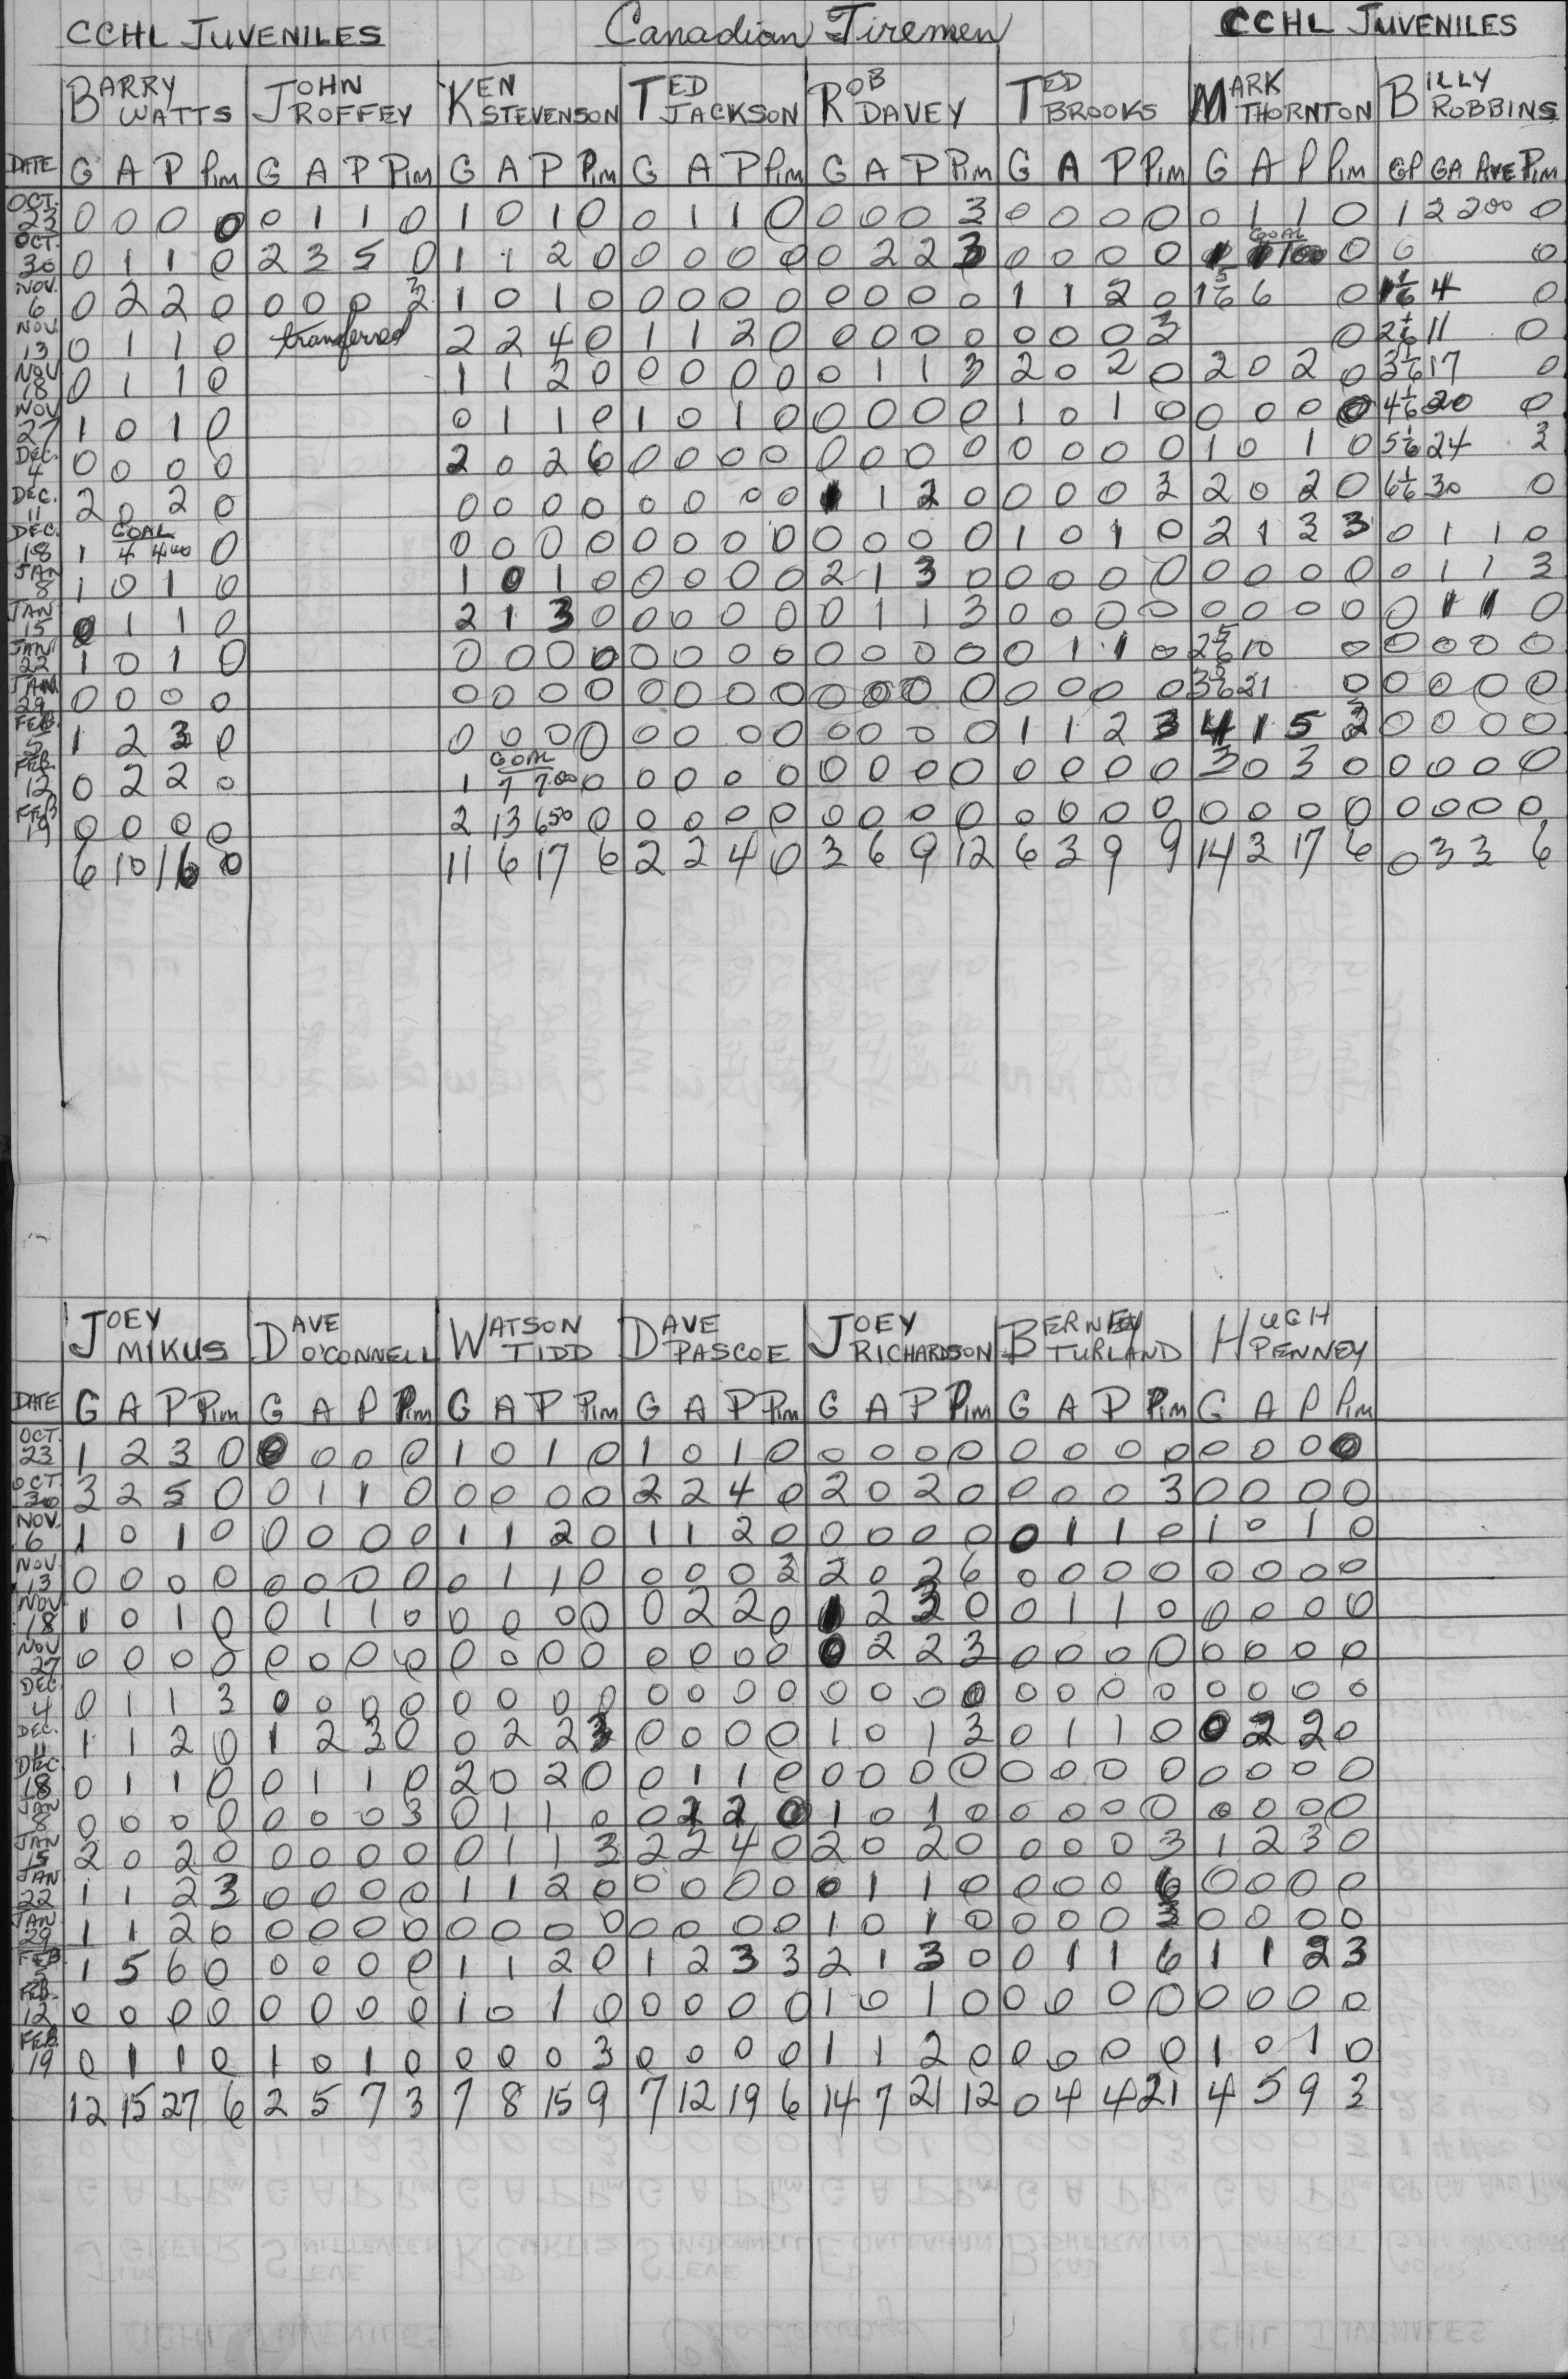 CCHL JUVENILES Canadian Tiremen CCHL JUVENILES
BARRY WATTS JOHN ROFFEY KEN STEVENSON TED JACKSON ROB DAVEY TED BROOKS MARK THORNTON BILLY ROBBINS
DATE G A P Pim G A P Pim G A P Pim G A P Pim G A P Pim G A P Pim G A P Pim GP GA AVE Pim
OCT. 23 0 0 0 0 0 1 1 0 1 0 1 0 0 1 1 0 0 0 0 3 0 0 0 0 0 1 1 0 1 2 200 0
OCT. 30 0 1 1 0 2 3 5 0 1 1 2 0 0 0 0 0 0 2 2 3 0 0 0 0 1 GOAL 1 100 0 0 0
NOV. 6 0 2 2 0 0 0 0 3 1 0 1 0 0 0 0 0 0 0 0 0 1 1 2 0 1 5/6 6 0 1 1/6 4 0
NOV. 13 0 1 1 0 transferred 2 2 4 0 1 1 2 0 0 0 0 0 0 0 0 3 0 2 1/6 11 0
NOV 18 0 1 1 0 1 1 2 0 0 0 0 0 0 1 1 3 2 0 2 0 2 0 2 0 3 1/6 17 0
NOV 27 1 0 1 0 0 1 1 0 1 0 1 0 0 0 0 0 1 0 1 0 0 0 0 0 4 1/6 20 0
DEC. 4 0 0 0 0 2 0 2 6 0 0 0 0 0 0 0 0 0 0 0 0 1 0 1 0 5 1/6 24 3
DEC. 11 2 0 2 0 0 0 0 0 0 0 0 0 1 1 2 0 0 0 0 3 2 0 2 0 6 1/6 30 0
DEC. 18 1 GOAL 4 400 0 0 0 0 0 0 0 0 0 0 0 0 0 1 0 1 0 2 1 3 3 0 1 1 0
JAN 8 1 0 1 0 1 0 1 0 0 0 0 0 2 1 3 0 0 0 0 0 0 0 0 0 0 1 1 3
JAN 15 0 1 1 0 2 1 3 0 0 0 0 0 0 1 1 3 0 0 0 0 0 0 0 0 0 1 1 0
JAN 22 1 0 1 0 0 0 0 0 0 0 0 0 0 0 0 0 0 1 1 0 2 5/6 10 0 0 0 0 0
JAN. 29 0 0 0 0 0 0 0 0 0 0 0 0 0 0 0 0 0 0 0 0 3 5/6 21 0 0 0 0 0
FEB. 5 1 2 3 0 0 0 0 0 0 0 0 0 0 0 0 0 1 1 2 3 4 1 5 3 0 0 0 0
FEB. 12 0 2 2 0 1 GOAL 7 700 0 0 0 0 0 0 0 0 0 0 0 0 0 3 0 3 0 0 0 0 0
FEB 19 0 0 0 0 2 13 650 0 0 0 0 0 0 0 0 0 0 0 0 0 0 0 0 0 0 0 0 0
6 10 16 0 11 6 17 6 2 2 4 0 3 6 9 12 6 3 9 9 14 3 17 6 0 3 3 6
JOEY MIKUS DAVE O'CONNELL WATSON TIDD DAVE PASCOE JOEY RICHARDSON BERNEY TURLAND HUGH PENNEY
DATE G A P Pim G A P Pim G A P Pim G A P Pim G A P Pim G A P Pim G A P Pim
OCT. 23 1 2 3 0 0 0 0 0 1 0 1 0 1 0 1 0 0 0 0 0 0 0 0 0 0 0 0 0
OCT. 30 3 2 5 0 0 1 1 0 0 0 0 0 2 2 4 0 2 0 2 0 0 0 0 3 0 0 0 0
NOV. 6 1 0 1 0 0 0 0 0 1 1 2 0 1 1 2 0 0 0 0 0 0 1 1 0 1 0 1 0
NOV 13 0 0 0 0 0 0 0 0 0 1 1 0 0 0 0 3 2 0 2 6 0 0 0 0 0 0 0 0
NOV 18 1 0 1 0 0 1 1 0 0 0 0 0 0 2 2 0 1 2 3 0 0 1 1 0 0 0 0 0
NOV 27 0 0 0 0 0 0 0 0 0 0 0 0 0 0 0 0 0 2 2 3 0 0 0 0 0 0 0 0
DEC. 4 0 1 1 3 0 0 0 0 0 0 0 0 0 0 0 0 0 0 0 0 0 0 0 0 0 0 0 0
DEC. 11 1 1 2 0 1 2 3 0 0 2 2 3 0 0 0 0 1 0 1 3 0 1 1 0 0 2 2 0
DEC 18 0 1 1 0 0 1 1 0 2 0 2 0 0 1 1 0 0 0 0 0 0 0 0 0 0 0 0 0
JAN 8 0 0 0 0 0 0 0 3 0 1 1 0 0 2 2 0 1 0 1 0 0 0 0 0 0 0 0 0
JAN 15 2 0 2 0 0 0 0 0 0 1 1 3 2 2 4 0 2 0 2 0 0 0 0 3 1 2 3 0
JAN 22 1 1 2 3 0 0 0 0 1 1 2 0 0 0 0 0 0 1 1 0 0 0 0 6 0 0 0 0
JAN. 29 1 1 2 0 0 0 0 0 0 0 0 0 0 0 0 0 1 0 1 0 0 0 0 3 0 0 0 0
FEB 5 1 5 6 0 0 0 0 0 1 1 2 0 1 2 3 3 2 1 3 0 0 1 1 6 1 1 2 3
FEB. 12 0 0 0 0 0 0 0 0 1 0 1 0 0 0 0 0 1 0 1 0 0 0 0 0 0 0 0 0
FEB. 19 0 1 1 0 1 0 1 0 0 0 0 3 0 0 0 0 1 1 2 0 0 0 0 0 1 0 1 0
12 15 27 6 2 5 7 3 7 8 15 9 7 12 19 6 14 7 21 12 0 4 4 21 4 5 9 3